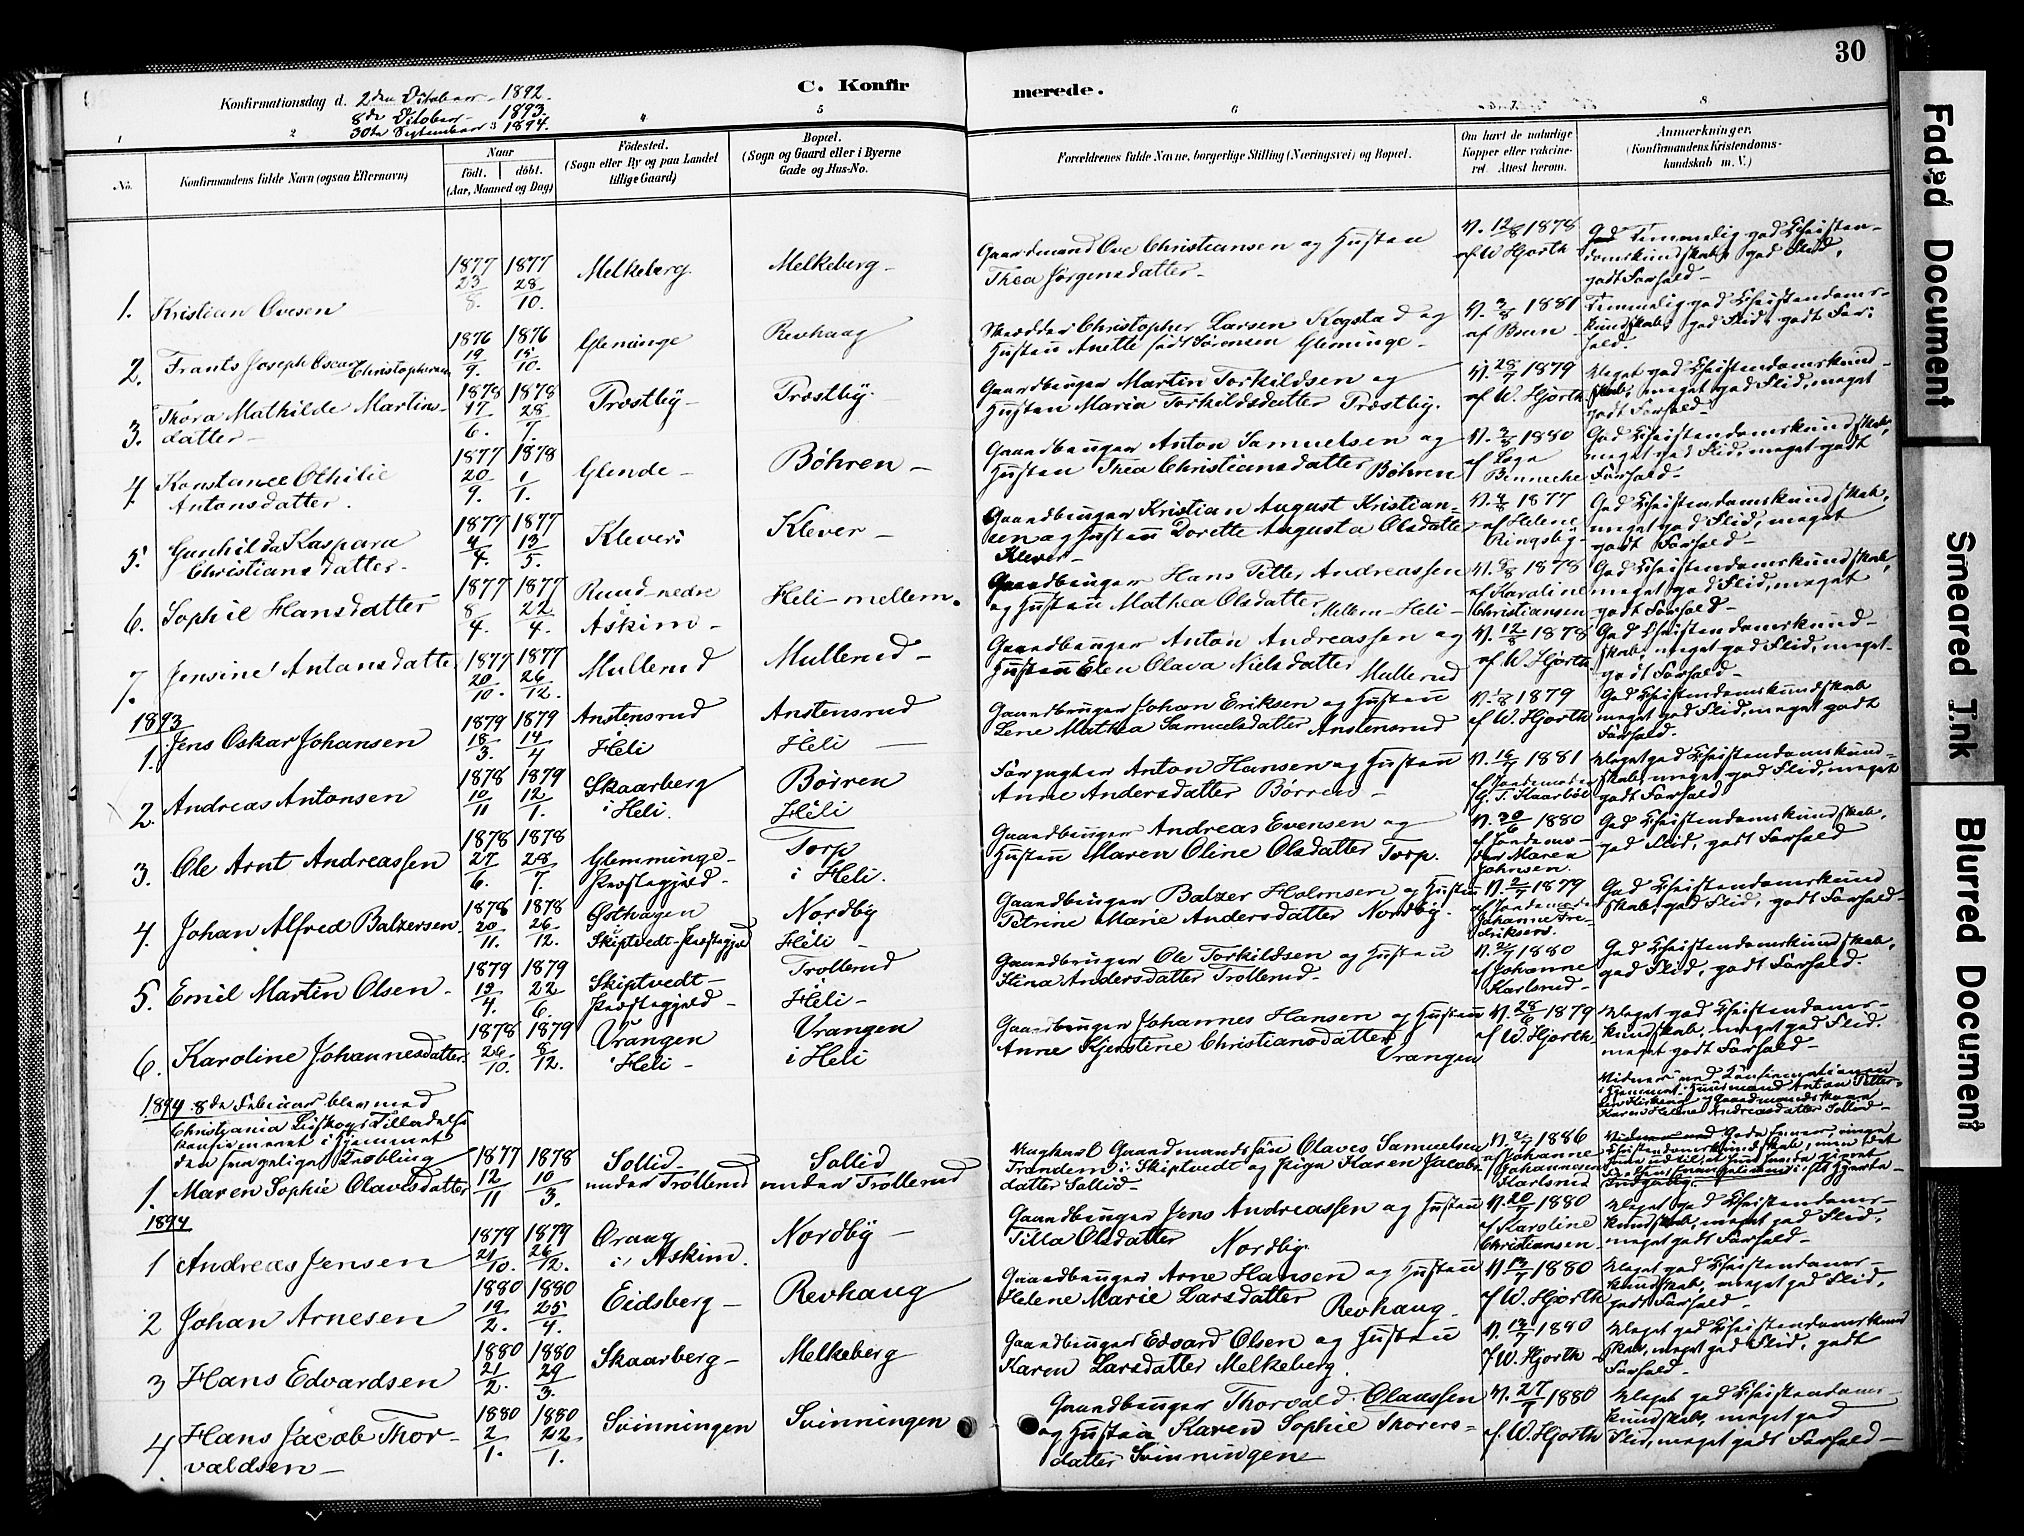 30
C. Konfirmerede.
Konfirmationsdag d. 2den October 1892.
8de October 1893.
30te September 1894.
1 2 4 5 6 8
No.
Konfirmandens fulde Navn (ogsaa Efternavn)
Naar
født. døbt.
(Aar, Maaned og Dag)
Fødested.
(Sogn eller By og paa Landet
tillige Gaard)
Bopæl.
(Sogn og Gaard eller i Byerne
Gade og Hus-No.
Forældrenes fulde Navne, borgerlige Stilling (Næringsvei) og Bopæl.
Om havt de naturlige
Kopper eller vakcine-
ret. Attest herom.
Anmærkninger.
(Konfirmandens Kristendoms-
kundskab m. V.)
1. Kristian Ovesen 1877 23/8. 1877 28/10. Melkeberg. Melkeberg-
Gaardmand Ove Christiansen og Hustru
Thea Jørgensdatter-
V. 12/8 1878
af W Hjorth
Temmelig god Christen-
domskundskab, god Flid,
godt Forhold-
2. Frants Joseph Oscar Christophersen 1876 19/9. 1876 15/10. Gleminge Revhaug
Skrædder Christopher Larsen Kogstad og
Hustru Anette født Sørensen Gleminge-
V. 3/8 1881
af Brun-
Temmelig god Christendoms-
kundskab, god Flid, godt For-
hold.
3. Thora Mathilde Martins-
datter- 1878 17/6. 1878 28/7. Træstby- Træstby.
Gaardbruger Martin Torkildsen og
Hustru Maria Torkildsdatter Træstby.
V. 28/7 1879
af W. Hjorth
Meget god Christendomskund-
skab, meget god Flid, meget
godt Forhold-
4. Konstance Othilie
Antonsdatter. 1877 20/9. 1878 1/1. Glende- Böhren-
Gaardbruger Anton Samuelsen og
Hustru Thea Christiansdatter Böhren
V. 3/8 1880
af
Benneche
God Christendomskundskab,
meget god Flid, meget godt
Forhold-
5. Gunhilda Kaspara
Christiansdatter- 1877 4/4. 1877 13/5. Klever: Klever-
Gaardbruger Kristian August Kristian-
sen og Hustru Dorette Augusta Olsdatter
Klever-
1877
af Helene
Ringsby-
God Christendomskundskab,
meget god Flid, meget
godt Forhold-
6. Sophie Hansdatter 1877 8/4. 1877 22/4. Ruud-nedre
Askim- Heli-mellem.
Gaardbruger Hans Petter Andreassen
og Hustru Mathea Olsdatter Mellem-Heli-
1878
af Karoline
Christiansen
God Christendomskundskab,
meget god Flid, meget
godt Forhold-
7. Jensine Antonsdatter 1877 20/10. 1877 26/12. Mullerud Mullerud-
Gaardbruger Anton Andreassen og
Hustru Elen Olava Nielsdatter Mullerud
V. 12/8 1878
af W. Hjorth
God Christendomskund-
skab, meget god Flid, meget
godt Forhold-
1893
1. Jens Oskar Johansen 1879 18/3. 1879 14/4 Anstensrud
Heli Anstensrud
Heli-
Gaardbruger Johan Eriksen og Hustru
Lene Mathea Samuelsdatter Anstensrud
1879
af W. Hjorth
God Christendomskundskab
meget god Flid, meget godt
Forhold.
2. Andreas Antonsen 1878 10/11 1879 12/1. Skaarberg
i Heli. Börren
Heli
Anton Hansen og Hustru
Anne Andersdatter Börren-
V. 16/7 1881
af Jordemoder
G. T. Skaarböl
Meget god Christendomskund-
skab, meget god Flid, meget
godt Forhold
3. Ole Arnt Andreassen 1878 27/6. 1878 28/7. Glemminge-
Præstegjæld- Torp
i Heli.
Gaardbruger Andreas Evensen og
Hustru Maren Oline Olsdatter Torp.
V. 30/6 1880
af Jordemo-
der Maren
Johnsen.
God Christendomskundskab,
god Flid, godt Forhold
4. Johan Alfred Balzersen 1878 20/11. 1878 26/12. Østhagen
Skiptvedt-Præstegjæld Nordby
Heli-
Gaardbruger Balzer Holmsen og Hustru
Petrine Marie Andersdatter Nordby.
V. 2/7 1879
af Jordemoder
Johanne Fre-
driksen.
God Christendomskund
skab, god Flid, godt Forhold-
5. Emil Martin Olsen- 1879 19/4. 1879 22/6. Skiptvedt-
Præstegjæld- Trollerud
Heli-
Gaardbruger Ole Torkildsen og Hustru
Stina Andersdatter Trollerud.
V. 2/7 1880
af Johanne
Karlsrud-
God Christendomskundskab,
god Flid, godt Forhold.
6. Karoline Johannesdatter 1878 26/10. 1879 8/12. Vrangen
i Heli- Vrangen
i Heli
Gaardbruger Johannes Hansen og Hustru
Anne Kjerstine Christiansdatter
Vrangen
V. 28/6 1879
af W. Hjorth
Meget god Christendoms-
kundskab, meget god Flid.
meget godt Forhold-
1894 8de Februar blev med
Christiania Biskops Tilladelse
konfirmeret i Hjemmet
den sengelige Træbling
Vidner ved Konfirmationen
i Hjemmet: Huusmand Anton Petter-
sen og Gaardmandskone
Karen Helene Andreasdatter Sollid-
1. Maren Sophie Olavesdatter 1877 12/11 1878 10/3. Sollid
under Trollerud Sollid
under Trollerud
Ungkarl Gaardmandssøn Olaves Samuelsen
Trandem i Skiptvedt og Pige Karen Jacobs-
datter Sollid-
V. 2/7 1886
af Johanne
Johannesen
Karlsrud
1894
1 Andreas Jensen 1879 21/10. 1879 26/12. Oraug
i Askim. Nordby-
Gaardbruger Jens Andreassen og Hustru
Tilla Olsdatter Nordby.
V. 20/7 1880
af Karoline
Christiansen-
Meget god Christendoms-
kundskab, meget god Flid,
meget godt Forhold-
2 Johan Arnesen 1880 19/2. 1880 25/4. Eidsberg- Revhaug
Gaardbruger Arne Hansen og Hustru
Helene Marie Larsdatter Revhaug.
V. 13/7 1880
af W. Hjorth
Meget god Christendoms-
kundskab, meget god Flid,
godt Forhold-
3 Hans Edvardsen 1880 21/2. 1880 29/3. Skaarberg- Melkeberg
Gaardbruger Edvard Olsen og Hustru
Karen Larsdatter Melkeberg
V. 13/7 1880
af W. Hjorth-
Meget god Christendomskund
skab, meget god Flid, godt
Forhold-
4 Hans Jacob Thor-
valdsen- 1880 2/1. 1880 22/1. Svinningen Svinningen
Gaardbruger Thorvald Olaussen
og Hustru Karen Sophie Thorers-
datter Svinningen
V. 27/7 1880
af W. Hjorth
Meget god Christendoms-
kundskab, meget god
Flid, meget godt Forhold-
Faded Document
Smeared Ink
Blurred Document